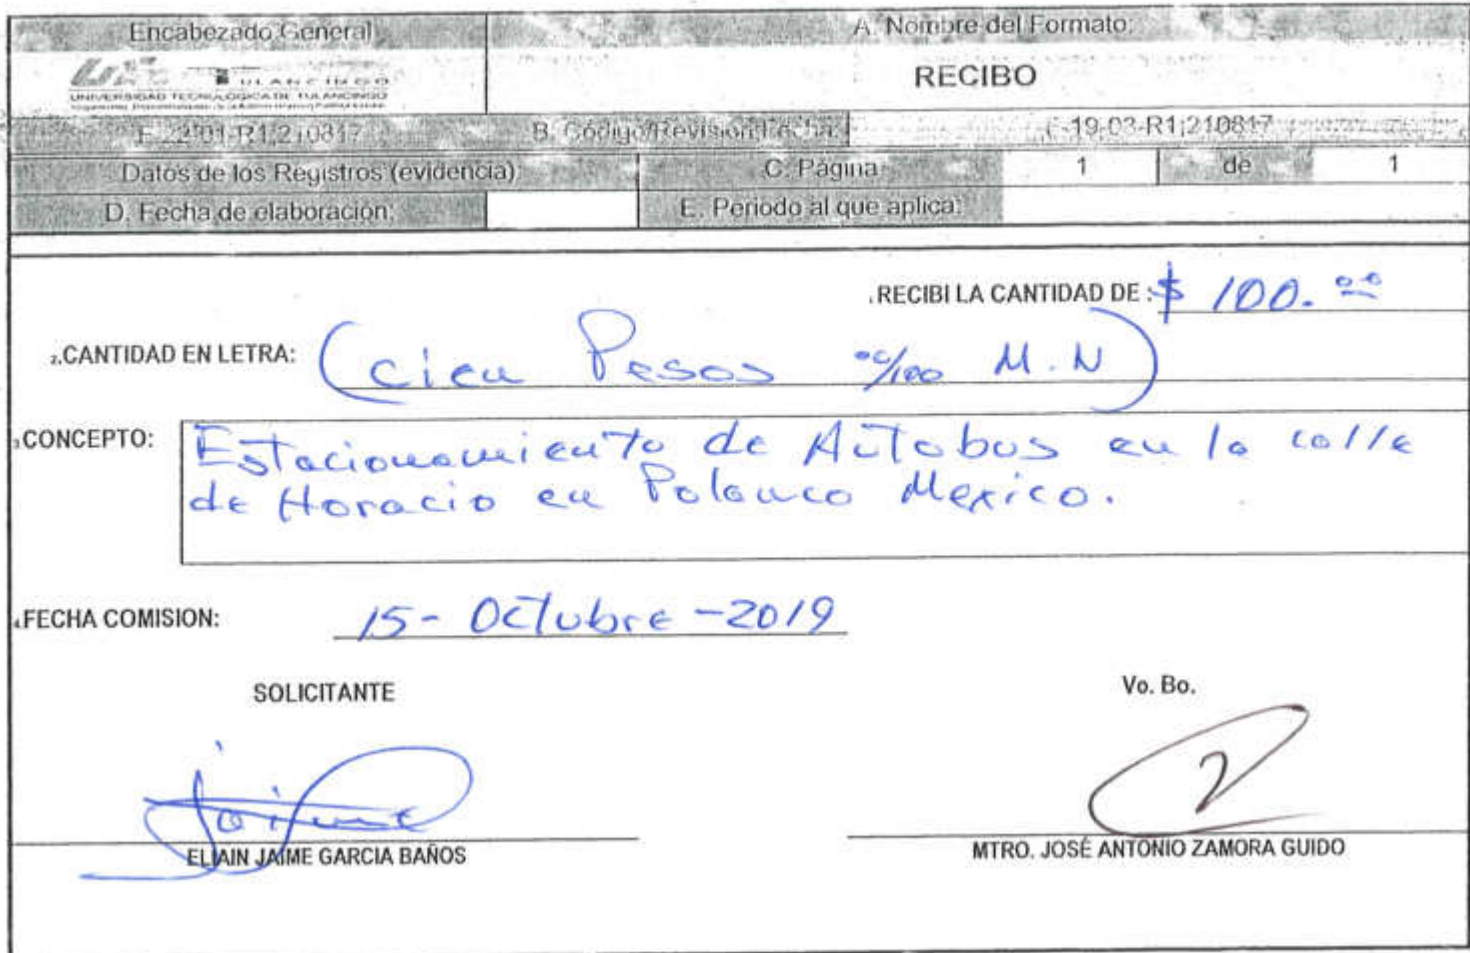 Encabezado General
A. Nombre del Formato:
TULANCINGO
UNIVERSIDAD TECNOLÓGICA DE TULANCINGO
RECIBO
F-22-01-R1;210817
B. Código/Revisión/Fecha:
F-19-03-R1;210817
Datos de los Registros (evidencia)
C. Página
1 de 1
D. Fecha de elaboración:
E. Periodo al que aplica:
1.RECIBI LA CANTIDAD DE : $ 100.00
2.CANTIDAD EN LETRA: (cien Pesos 00/100 M.N)
3.CONCEPTO: Estacionamiento de Autobus en la calle
de Horacio en Polanco Mexico.
4.FECHA COMISION: 15- Octubre -2019
SOLICITANTE
Vo. Bo.
Jaime
ELIAIN JAIME GARCIA BAÑOS
MTRO. JOSÉ ANTONIO ZAMORA GUIDO